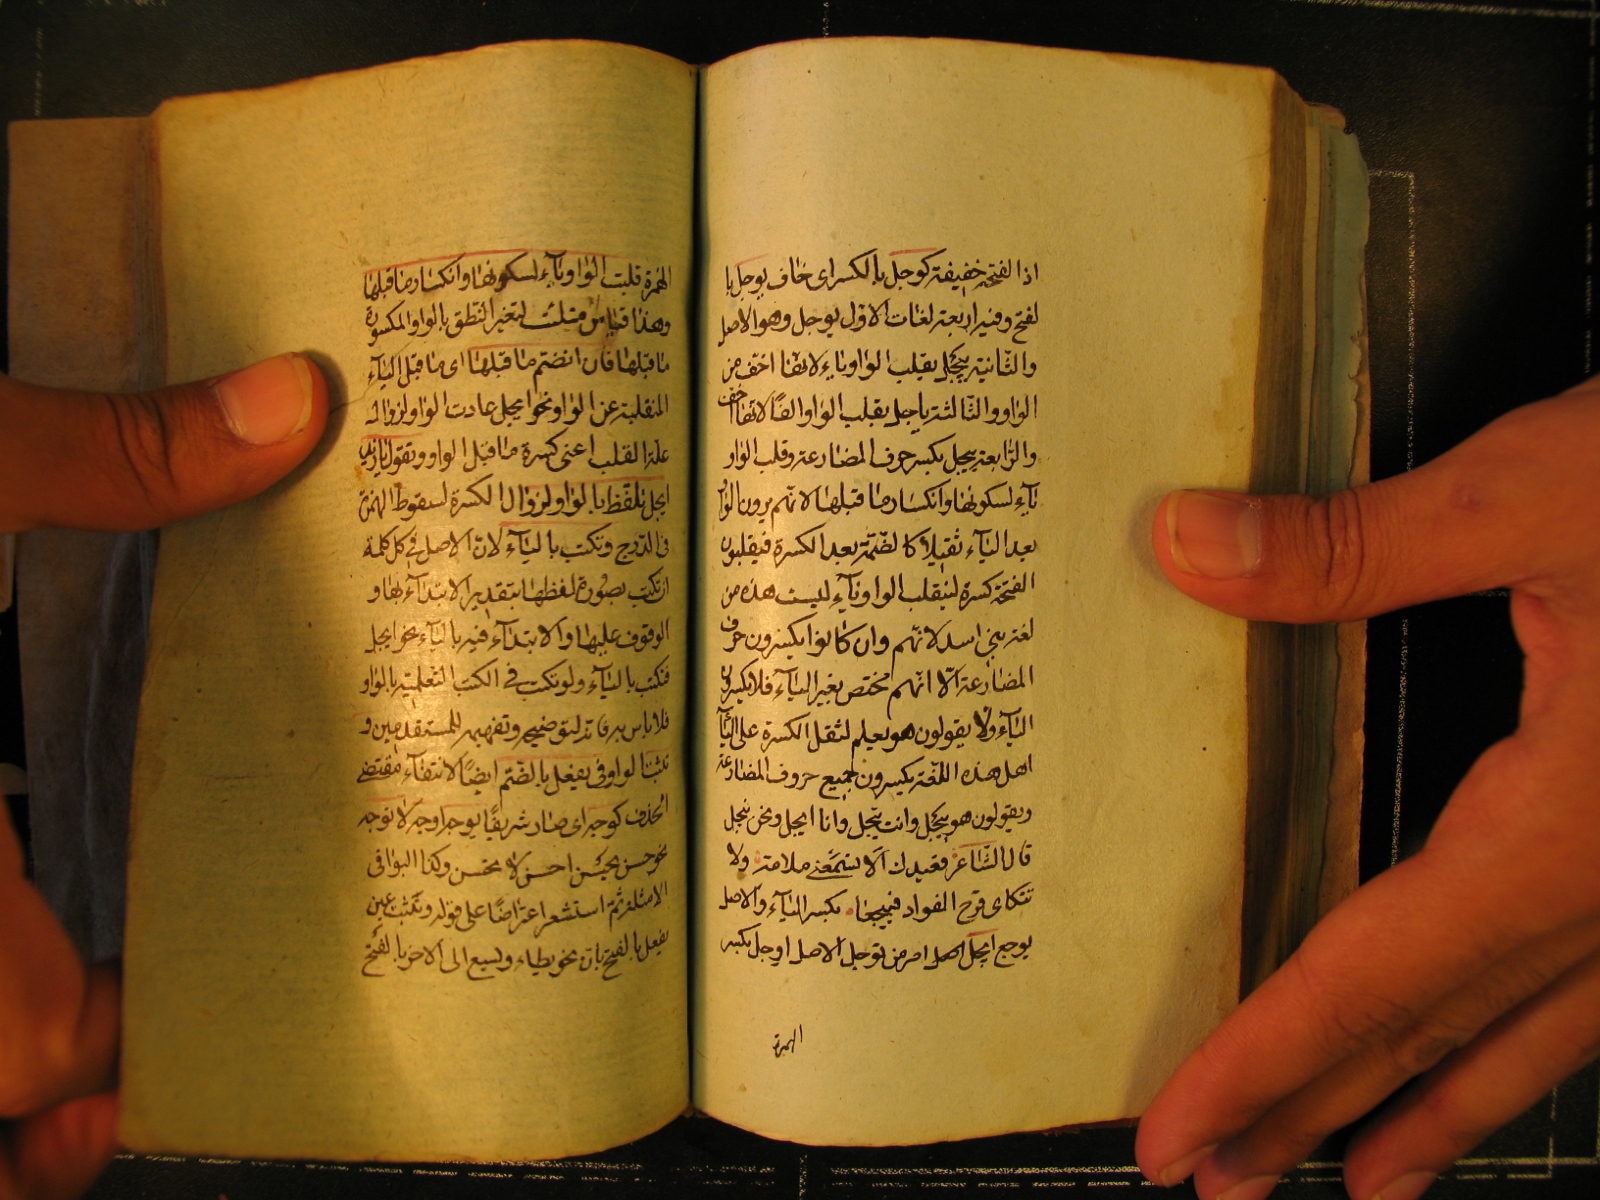 اذا الفتحة خفيفة كوجل بالكسر اى خاف يوجل با
لفتح وفيه اربعة لغات الاول يوجل وهو الاصل
والثانية ييجل بقلب الواو ياء لانها اخف من
الواو والثالثة ياجل بقلب الواو الفا لانها اخف
والرابعة ييجل بكسر حرف المضارعة وقلب الواو
ياء لسكونها وانكسار ما قبلها لانهم يرون الواو
بعد الياء ثقيلا كالضمة بعد الكسرة فيقلبون
الفتحة كسرة لينقلب الواو ياء ليست هذه من
لغة بنى اسد لانهم وان كانوا يكسرون حرف
المضارعة الا انهم مختص بغير الياء فلا يكسرون
الياء ولا يقولون هو يعلم لثقل الكسرة على الياء
اهل هذه اللغة يكسرون جميع حروف المضارعة
ويقولون هو ييجل وانت تيجل وانا ايجل ونحن نيجل
قال الشاعر قعيدك الا تسمعنى ملامة ولا
تنكاى قرح الفواد فييجعا بكسر الياء والاصل
يوجع ايجل اصله امر من توجل الاصل اوجل بكسر
الهمزة
الهمزة قلبت الواو ياء لسكونها وانكسار ما قبلها
وهذا قياس لتغير النطق بالواو المكسورة
ما قبلها فان انضم ما قبلها اى ما قبل الياء
المنقلبة عن الواو نحو ايجل عادت الواو لزوال
علة القلب اعنى كسرة ما قبل الواو وتقول يا زيد
ايجل تلفظ بالواو لزوال الكسرة لسقوط الهمزة
فى الدرج وتكتب بالياء لان الاصل فى كل كلمة
ان تكتب بصورة لفظها بتقدير الابتداء بها و
الوقوف عليها والابتداء فيه بالياء نحو ايجل
فتكتب بالياء ولو تكتب فى الكتب التعلمية بالواو
فلا باس به لتوضيحه وتفهيمه للمستفدمين و
تثبت الواو فى يفعل بالضم ايضا لانتفاء مقتضى
الحذف كوجه اى صار شريفا يوجه اوجه لا توجه
نحو حسن يحسن احسن لا تحسن وكذا البواقى
الامثلة ثم استشعر اعتراضا على قوله وتثبت عين
يفعل بالفتح بان نحو يطاء ويسع الى الاخر بالفتح